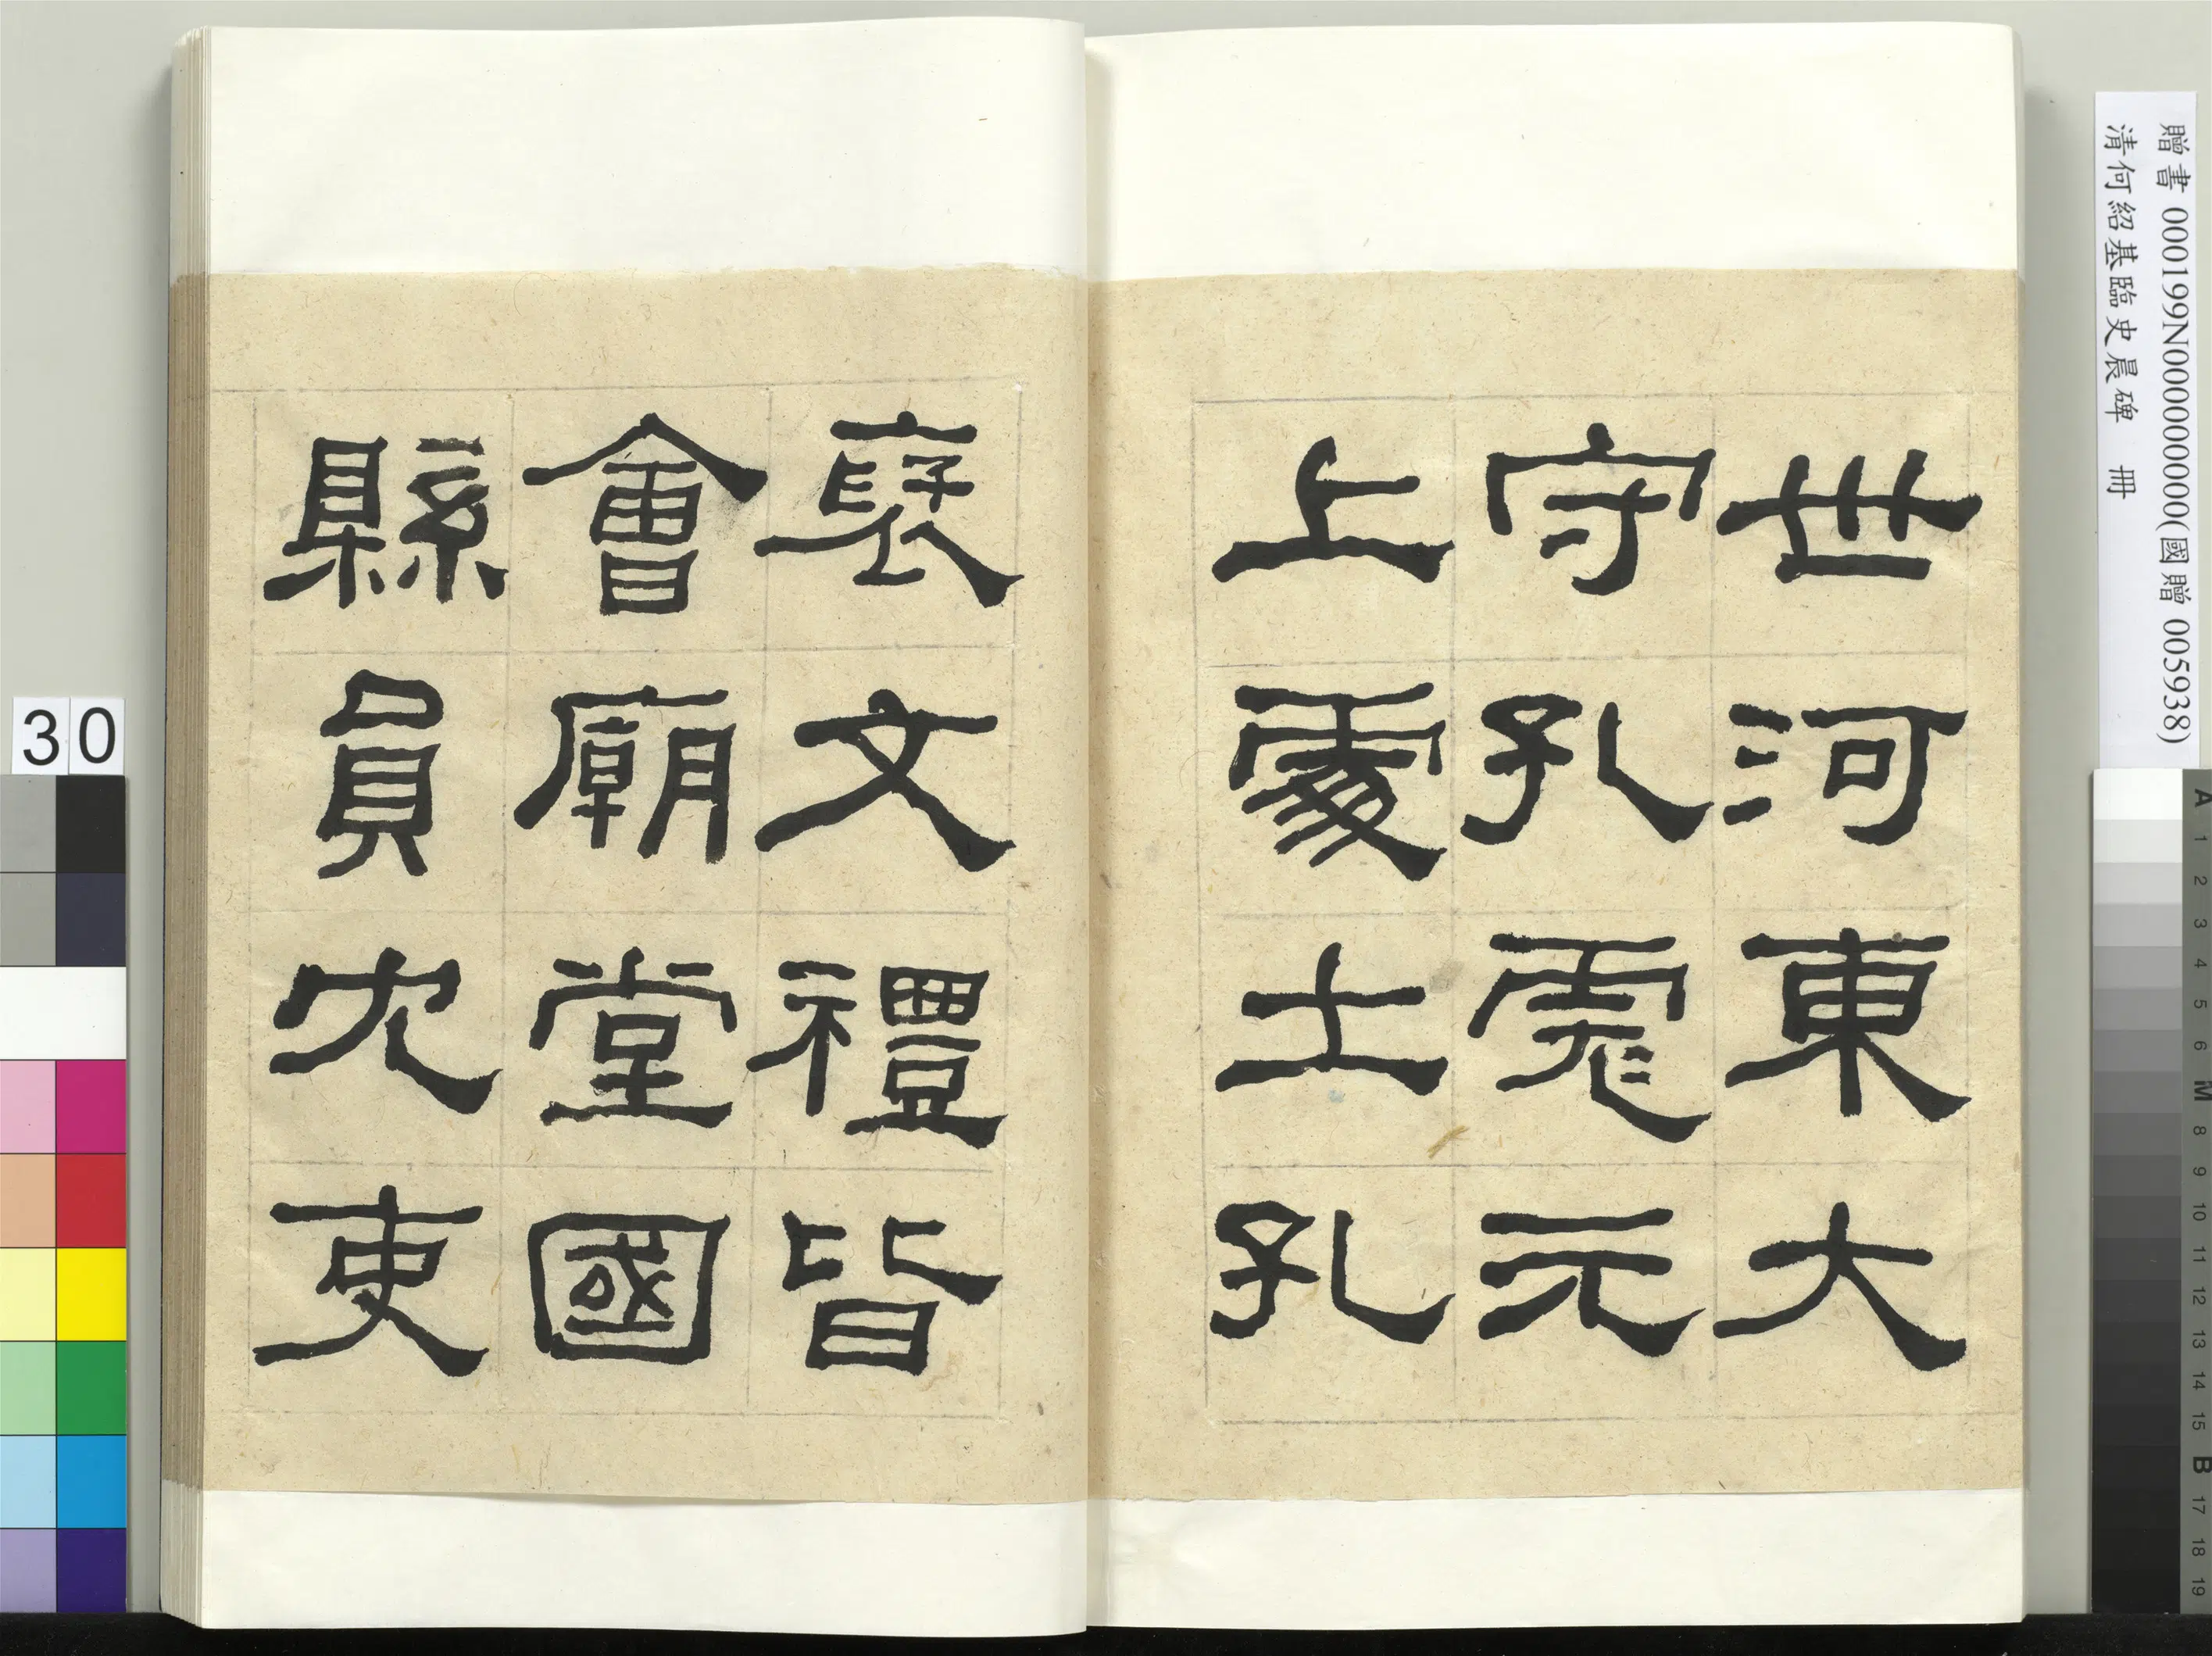 世河東大
守孔彪元
上處土孔
褒文禮皆
會廟堂國
縣員冗吏
贈書 000199N000000000(國贈 005938)
清何紹基臨史晨碑 冊
30
A 1 2 3 4 5 6 M 8 9 10 11 12 13 14 15 B 17 18 19